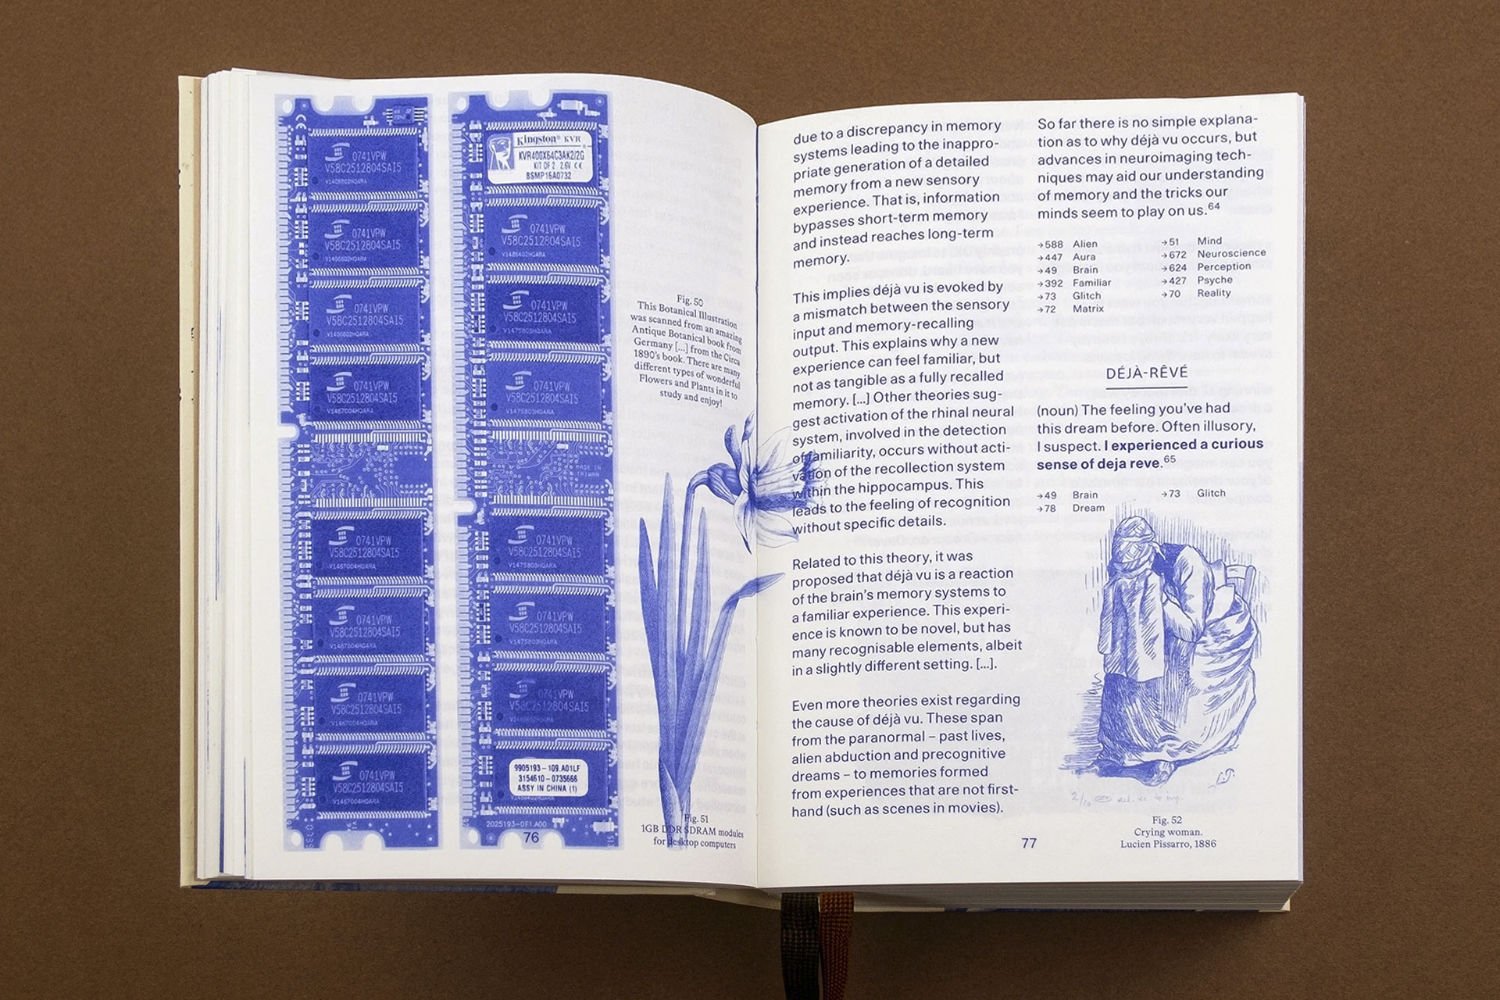 0741VPW
V58C2512804SAI5
0741VPW
V58C2512804SAI5
0741VPW
V58C2512804SAI5
0741VPW
V58C2512804SAI5
0741VPW
V58C2512804SAI5
0741VPW
V58C2512804SAI5
0741VPW
V58C2512804SAI5
0741VPW
V58C2512804SAI5
Kingston® KVR
KVR400X64C3AK2/2G
KIT OF 2 2.6V CE
BSMP16A0732
0741VPW
V58C2512804SAI5
0741VPW
V58C2512804SAI5
0741VPW
V58C2512804SAI5
MADE IN
TAIWAN
0741VPW
V58C2512804SAI5
0741VPW
V58C2512804SAI5
0741VPW
V58C2512804SAI5
9905193-109.A01LF
3154610-0735666
ASSY IN CHINA (1)
2025193-0F1.A00
76
Fig. 50
This Botanical Illustration
was scanned from an amazing
Antique Botanical book from
Germany [...] from the Circa
1890's book. There are many
different types of wonderful
Flowers and Plants in it to
study and enjoy!
Fig. 51
1GB DDR SDRAM modules
for desktop computers
due to a discrepancy in memory
systems leading to the inappro-
priate generation of a detailed
memory from a new sensory
experience. That is, information
bypasses short-term memory
and instead reaches long-term
memory.
This implies déjà vu is evoked by
a mismatch between the sensory
input and memory-recalling
output. This explains why a new
experience can feel familiar, but
not as tangible as a fully recalled
memory. [...] Other theories sug-
gest activation of the rhinal neural
system, involved in the detection
of familiarity, occurs without acti-
vation of the recollection system
within the hippocampus. This
leads to the feeling of recognition
without specific details.
Related to this theory, it was
proposed that déjà vu is a reaction
of the brain's memory systems to
a familiar experience. This experi-
ence is known to be novel, but has
many recognisable elements, albeit
in a slightly different setting. [...].
Even more theories exist regarding
the cause of déjà vu. These span
from the paranormal – past lives,
alien abduction and precognitive
dreams – to memories formed
from experiences that are not first-
hand (such as scenes in movies).
So far there is no simple explana-
tion as to why déjà vu occurs, but
advances in neuroimaging tech-
niques may aid our understanding
of memory and the tricks our
minds seem to play on us.64
→588 Alien
→447 Aura
→49 Brain
→392 Familiar
→73 Glitch
→72 Matrix
→51 Mind
→672 Neuroscience
→624 Perception
→427 Psyche
→70 Reality
DÉJÀ-RÊVÉ
(noun) The feeling you've had
this dream before. Often illusory,
I suspect. I experienced a curious
sense of deja reve.65
→49 Brain
→78 Dream
→73 Glitch
L.P.
Fig. 52
Crying woman.
Lucien Pissarro, 1886
77